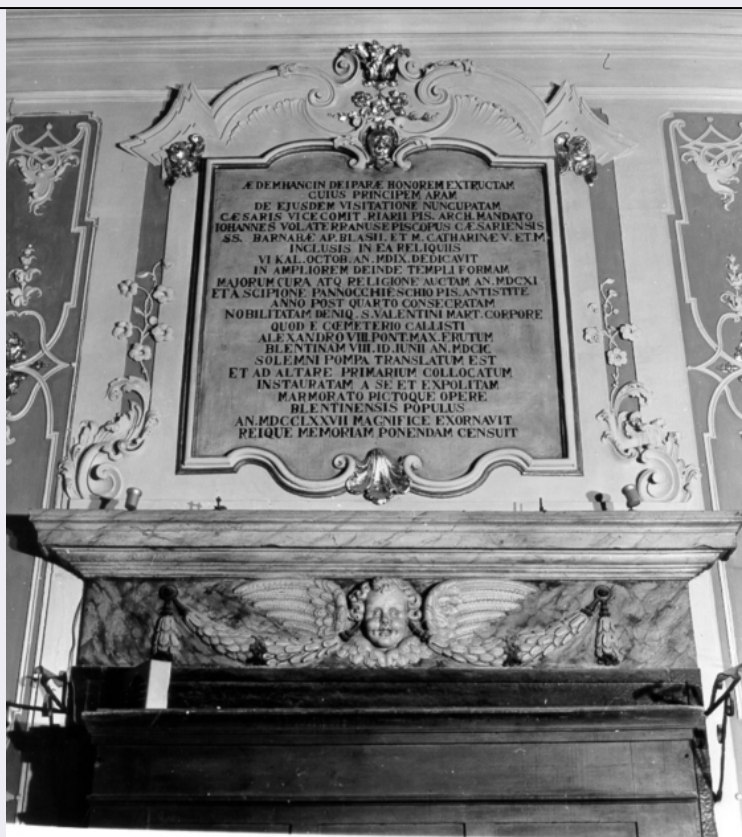 ÆDEM HANC IN DEIPARÆ HONOREM EXTRUCTAM
CUIUS PRINCIPEM ARAM
DE EJUSDEM VISITATIONE NUNCUPATAM
CÆSARIS VICECOMIT. RIARII PIS. ARCH. MANDATO
IOHANNES VOLATERRANUS EPISCOPUS CÆSARIENSIS
SS. BARNABÆ AP. BLASII. ET M. CATHARINÆ V. ET M
INCLUSIS IN EA RELIQUIIS
VI KAL. OCTOB. AN. MDIX. DEDICAVIT
IN AMPLIOREM DEINDE TEMPLI FORMAM
MAJORUM CURA ATQ RELIGIONE AUCTAM AN. MDCXI
ET A SCIPIONE PANNOCCHIESCHIO PIS. ANTISTITE
ANNO POST QUARTO CONSECRATAM
NOBILITATAM DENIQ. S. VALENTINI MART. CORPORE
QUOD E CŒMETERIO CALLISTI
ALEXANDRO VIII. PONT. MAX. ERUTUM
BLENTINAM VIII. ID. IUNII AN. MDCIC
SOLEMNI POMPA TRANSLATUM EST
ET AD ALTARE PRIMARIUM COLLOCATUM
INSTAURATAM A SE ET EXPOLITAM
MARMORATO PICTOQUE OPERE
BLENTINENSIS POPULUS
AN. MDCCLXXVII MAGNIFICE EXORNAVIT
REIQUE MEMORIAM PONENDAM CENSUIT